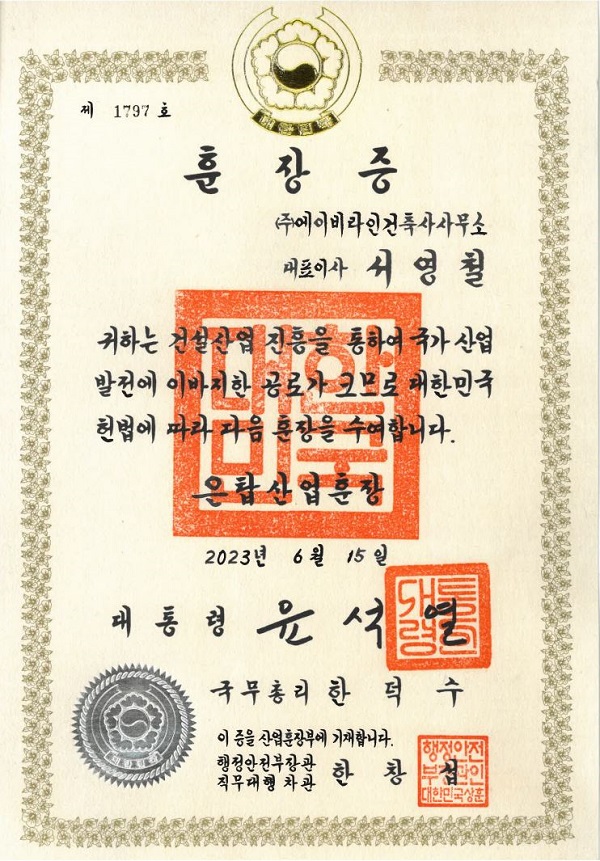 대한민국
제 1797 호
훈 장 증
(주)에이비라인건축사사무소
대표이사 서 영 철
귀하는 건설산업 진흥을 통하여 국가 산업
발전에 이바지한 공로가 크므로 대한민국
헌법에 따라 다음 훈장을 수여합니다.
은탑산업훈장
2023년 6월 15일
대 통 령 윤 석 열
국무총리 한 덕 수
이 증을 산업훈장부에 기재합니다.
행정안전부장관
직무대행 차관 한 창 섭
행정안전
부장관인
대한민국상훈